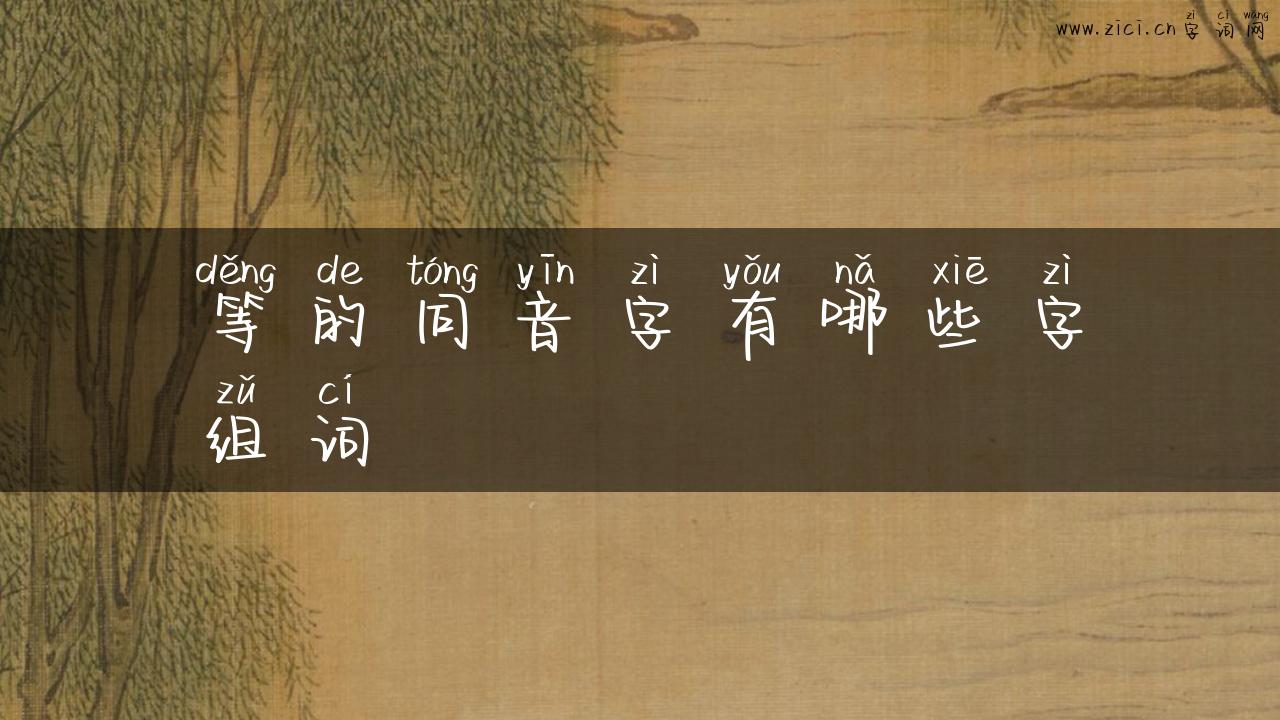 zì cí wǎng
www.zici.cn字词网
děng de tóng yīn zì yǒu nǎ xiē zì
等的同音字有哪些字
zǔ cí
组词